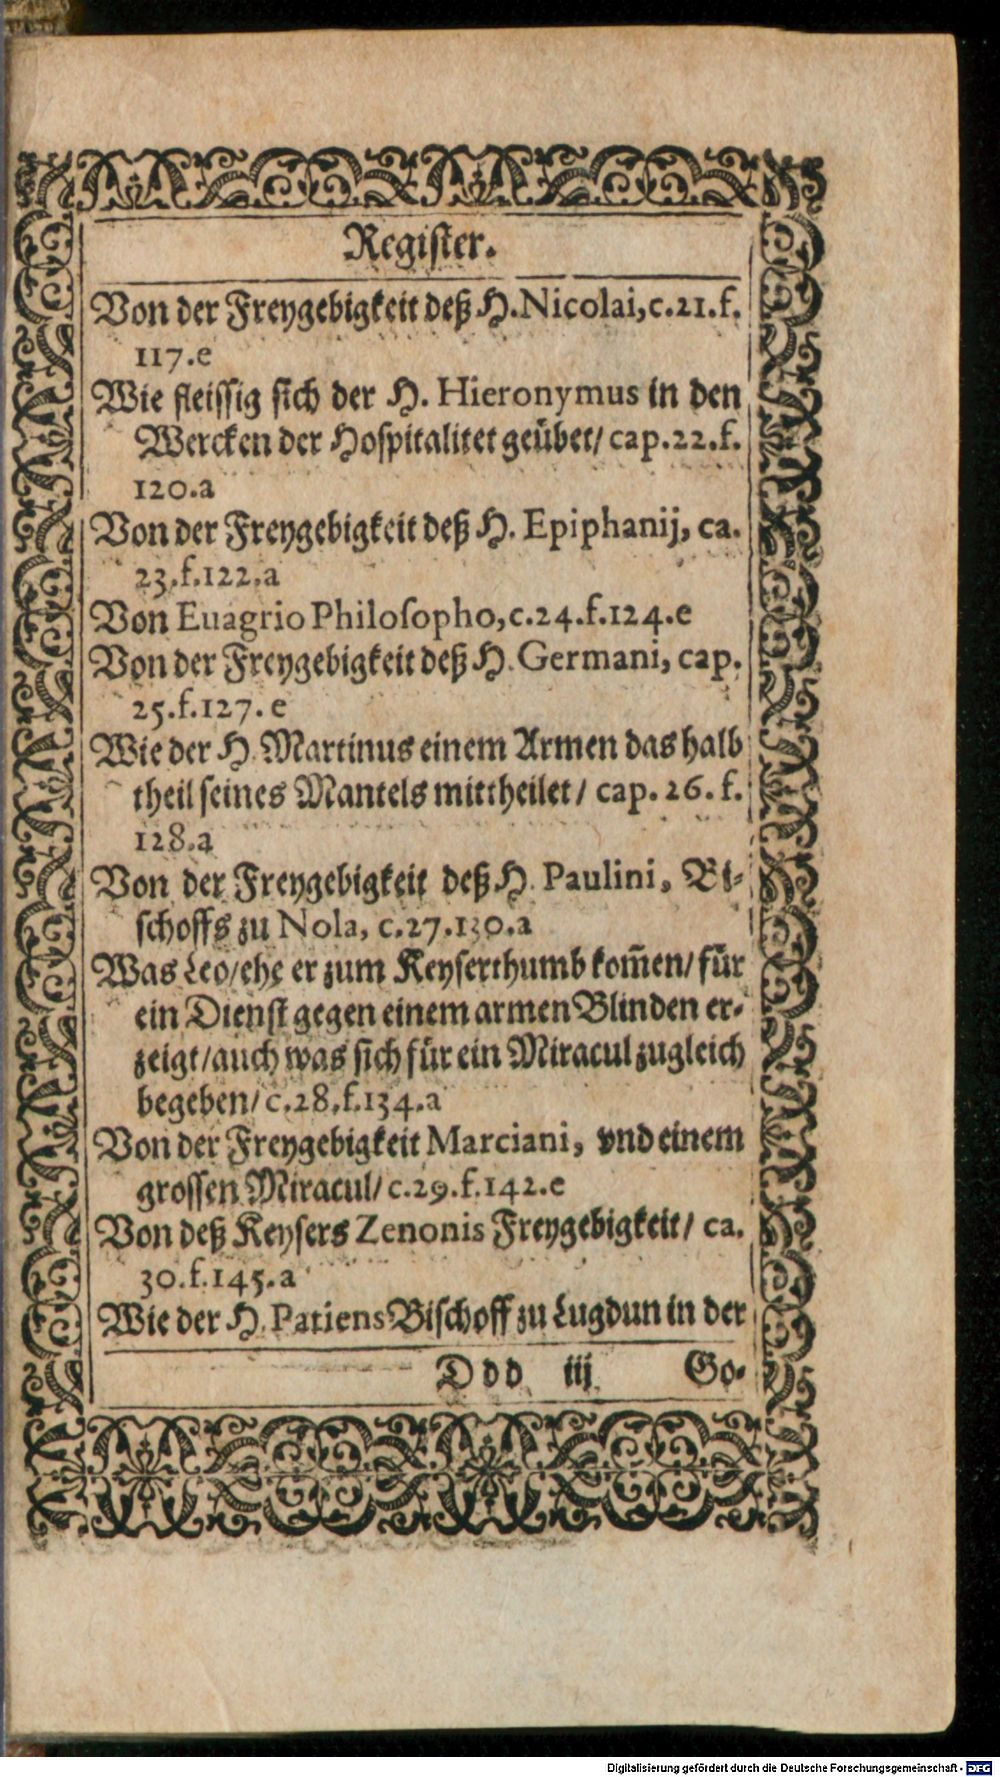 Register.
Von der Freygebigkeit deß H. Nicolai, c. 21. f.
117. e
Wie fleissig sich der H. Hieronymus in den
Wercken der Hospitalitet geübet/ cap. 22. f.
120. a
Von der Freygebigkeit deß H. Epiphanij, ca.
23. f. 122. a
Von Euagrio Philosopho, c. 24. f. 124. e
Von der Freygebigkeit deß H. Germani, cap.
25. f. 127. e
Wie der H. Martinus einem Armen das halb
theil seines Mantels mittheilet/ cap. 26. f.
128. a
Von der Freygebigkeit deß H. Paulini, Bi-
schoffs zu Nola, c. 27. 130. a
Was Leo/ ehe er zum Keyserthumb kom̃en/ für
ein Dienst gegen einem armen Blinden er-
zeigt/ auch was sich für ein Miracul zugleich
begeben/ c. 28. f. 134. a
Von der Freygebigkeit Marciani, vnd einem
grossen Miracul/ c. 29. f. 142. e
Von deß Keysers Zenonis Freygebigkeit/ ca.
30. f. 145. a
Wie der H. Patiens Bischoff zu Lugdun in der
Ddd iij Go-
Digitalisierung gefördert durch die Deutsche Forschungsgemeinschaft - DFG